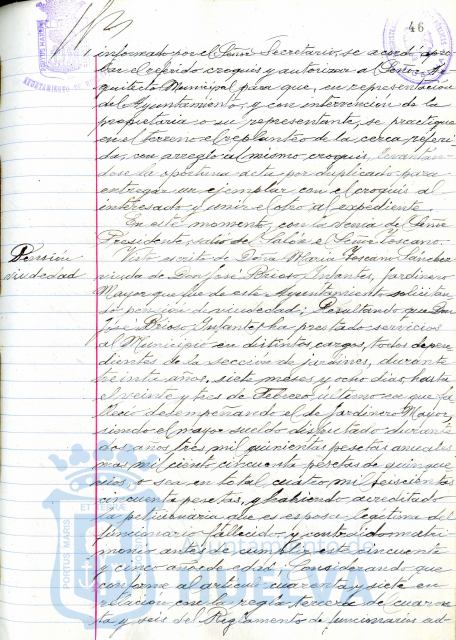 46
informado por el Señor Secretario, se acordó apro-
bar el referido croquis y autorizar al Señor Ar-
quitecto Municipal para que, en representación
del Ayuntamiento, y con intervención de la
propietaria o su representante, se practique
en el terreno el replanteo de la cerca referi-
da, con arreglo al mismo croquis, levantan-
dose la oportuna acta por duplicado para
entregar un ejemplar con el croquis al
interesado y unir el otro al expediente.
En este momento, con la venia del Señor
Presidente, salió del Salón el Señor Toscano.
Pensión
viudedad
Visto escrito de Doña María Toscano Sánchez
viuda de Don José Brioso Infantes, Jardinero
Mayor que fue de este Ayuntamiento solicitan
do pensión de viudedad; Resultando que Don
José Brioso Infantes ha prestado servicios
al Municipio en distintos cargos, todos depen
dientes de la sección de jardines, durante
treinta años, siete meses y ocho dias, hasta
el veinte y tres de Febrero último en que fa
lleció desempeñando el de Jardinero Mayor,
siendo el mayor sueldo disfrutado durante
dos años tres mil quinientas pesetas anuales
mas mil ciento cincuenta pesetas de quinque
nios o sea en total cuatro mil seiscientas
cincuenta pesetas, y habiendo acreditado
la peticionaria que es esposa legitima del
funcionario fallecido y contrajo matri
monio antes de cumplir este cincuenta
y cinco años de edad. Considerando que
conforme al articulo cuarenta y siete en
relación con la regla tercera de cuaren
ta y seis del Reglamento de funcionarios ad-
PORTUS MARIS
ET TERRÆ
Ayuntamiento de
HUELVA